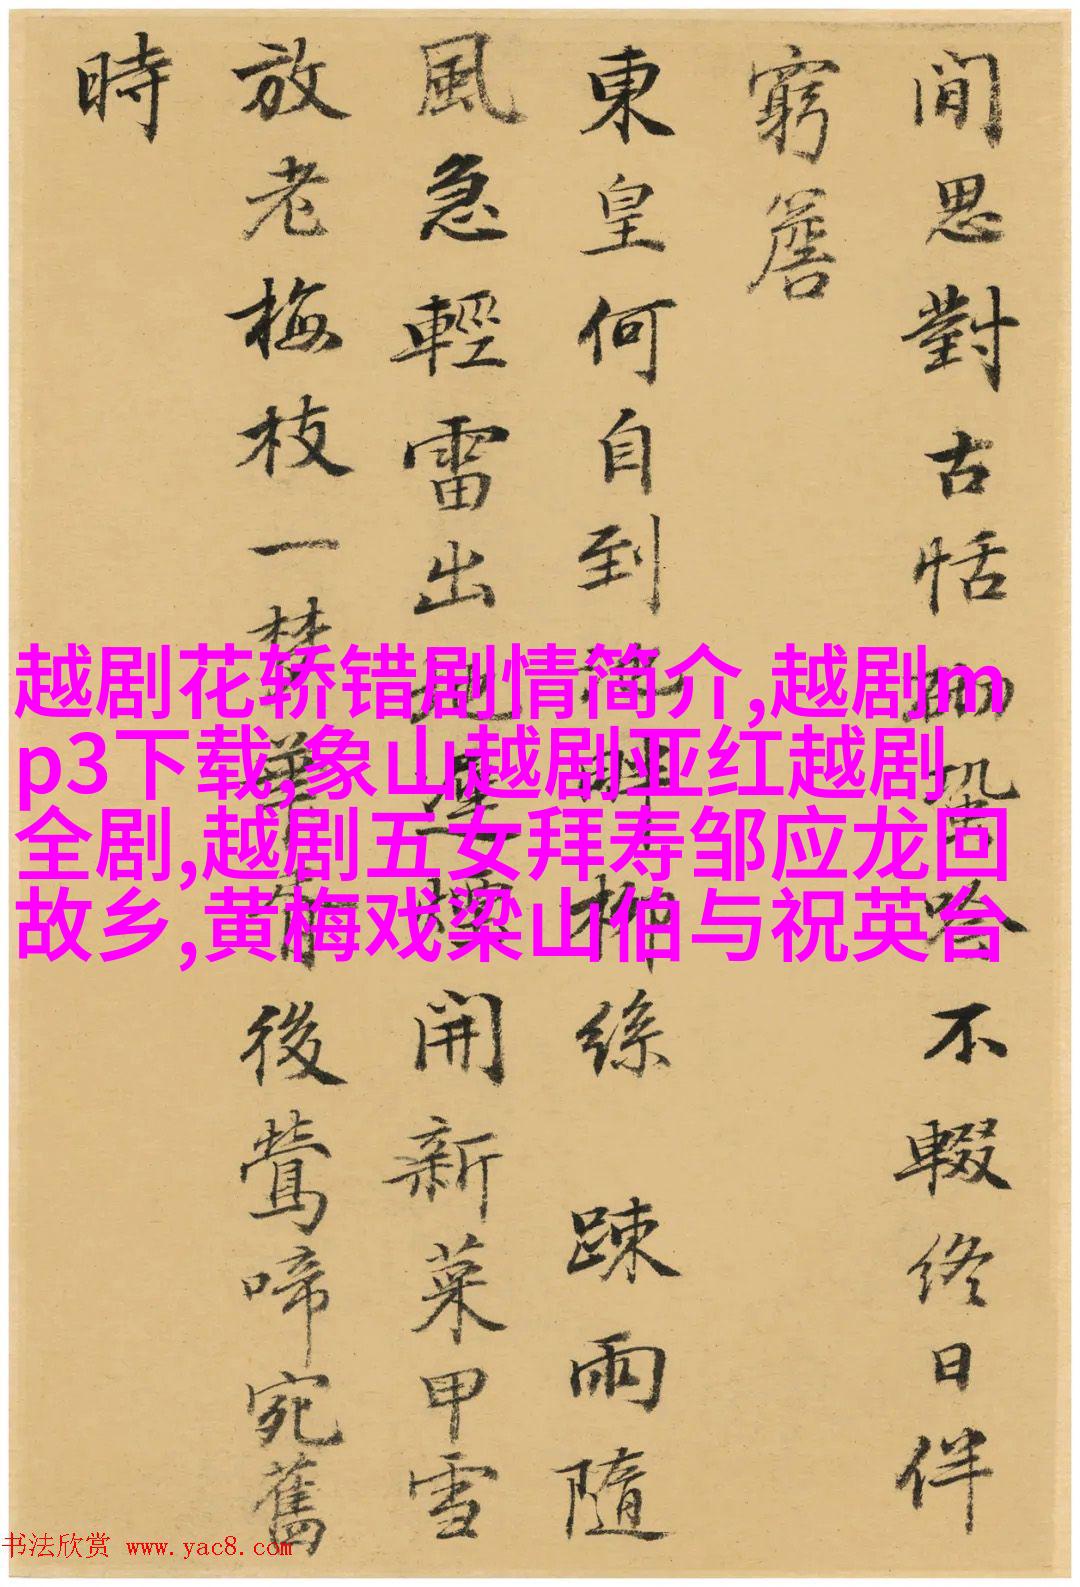 閒思對古恬蛩吟不輟終日伴
窮簷
東皇何自到畔柳絲 踈雨隨
風急輕雷出地開新菜甲雪
放老梅枝一後鶯啼宛舊
時
越剧花轿错剧情简介,越剧m
p3下载,象山越剧亚红越剧
全剧,越剧五女拜寿邹应龙回
故乡,黄梅戏梁山伯与祝英台
书法欣赏 www.yac8.com